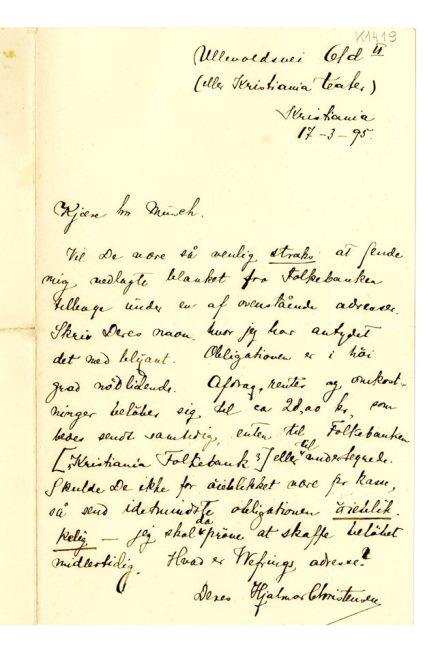 K1419
Ullevoldsvei 61d II
(eller Kristiania teater)
Kristiania
17-3-95.
Kjære hr Munch.
Vil De være så venlig straks at sende
mig vedlagte blanket fra Folkebanken
tilbage under en af ovenstående adresser.
Skriv Deres navn hvor jeg har antydet
det med blyant. Obligationen er i høi
grad nødlidende. Afdrag, renter og omkost-
ninger beløber sig til ca 20,00 kr, som
bedes sendt samtidig, enten til Folkebanken
[„Kristiania Folkebank"] eller til undertegnede.
Skulde De ikke for øieblikket være pr kasse,
så send idetmindste obligationen øieblik-
kelig — jeg skal da prøve at skaffe beløbet
midlertidig. Hvad er Wefrings adresse?
Deres Hjalmar Christensen